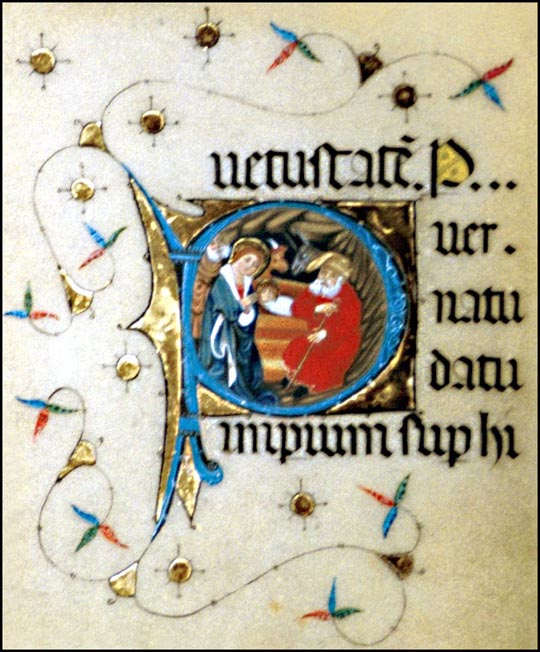 uetustatē. P...
Puer.
natu
datu
impium sup hi